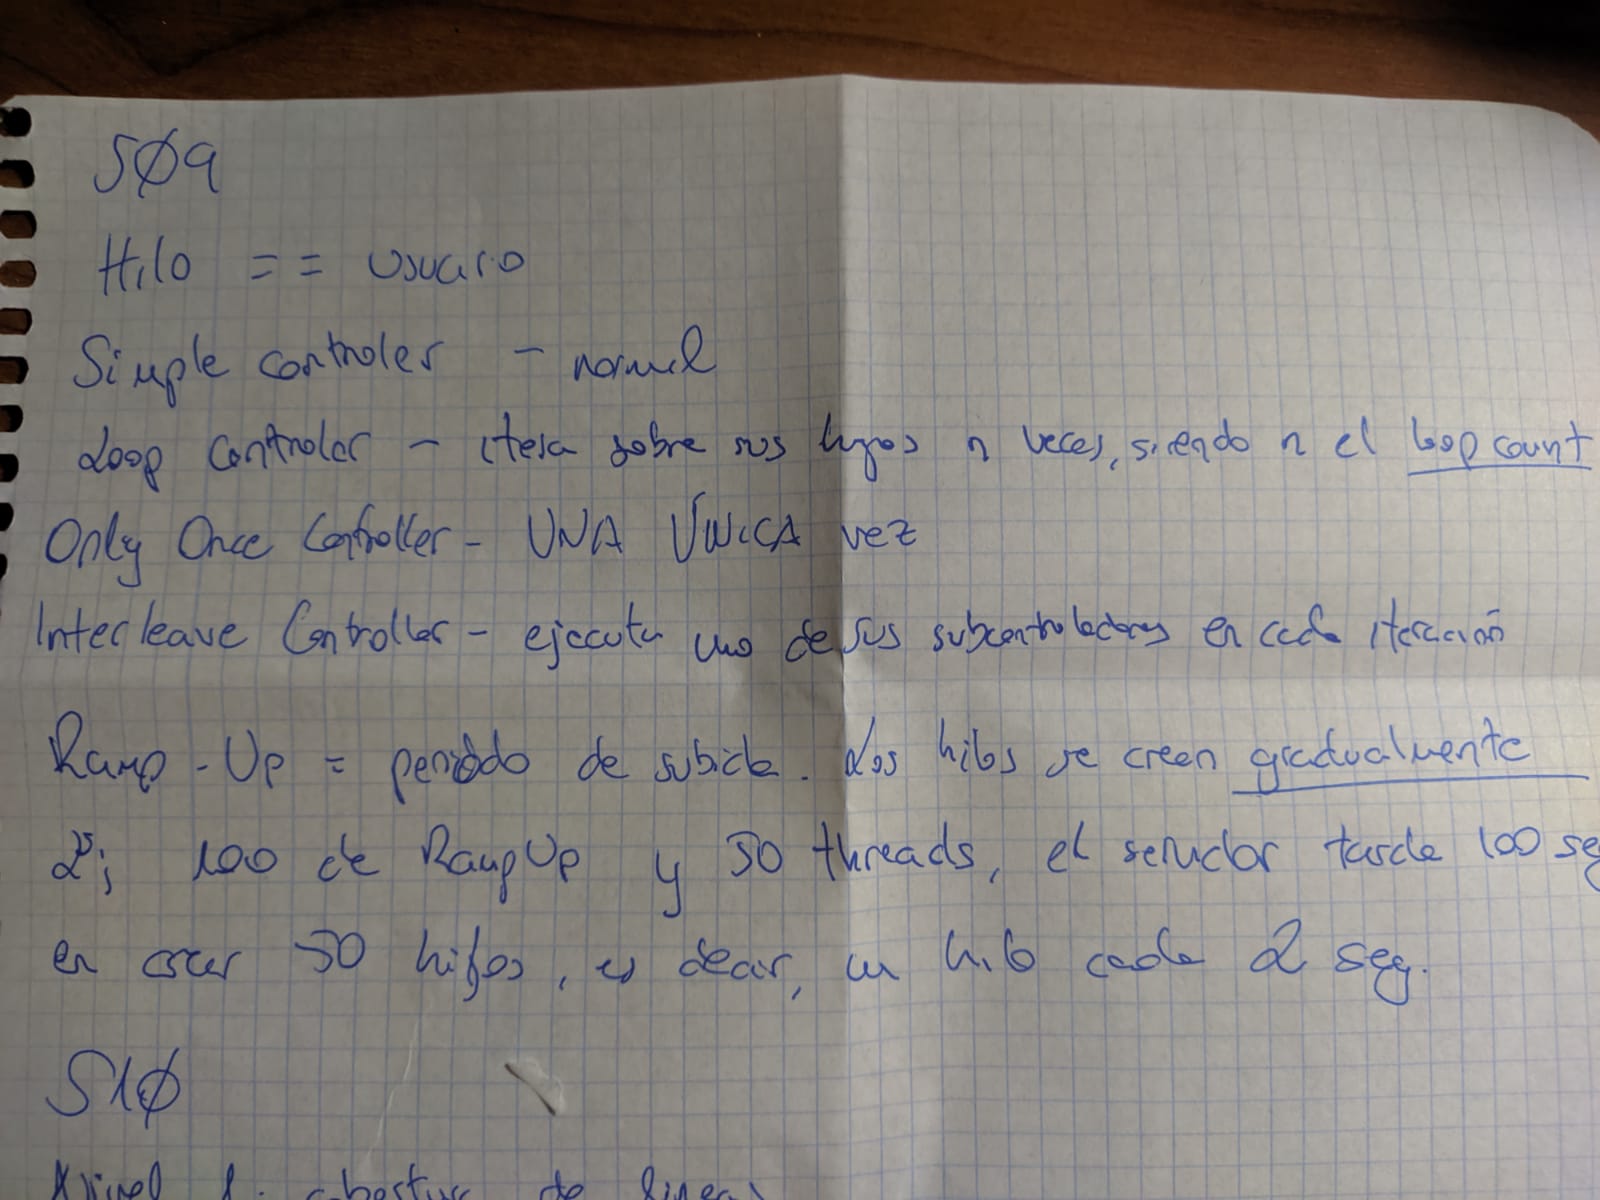 SØ9
Hilo == usuario
Simple controler - normal
Loop Controler - itera sobre sus hijos n veces, siendo n el loop count
Only Once Controller - UNA ÚNICA vez
Interleave Controller - ejecuta uno de sus subcontroladores en cada iteración
Ramp-Up = periodo de subida. Los hilos se crean gradualmente
100 de RampUp y 50 threads, el servidor tarda 100 seg
en crear 50 hilos, es decir, un hilo cada 2 seg.
S1Ø
Nivel 1: cobertura de lineas